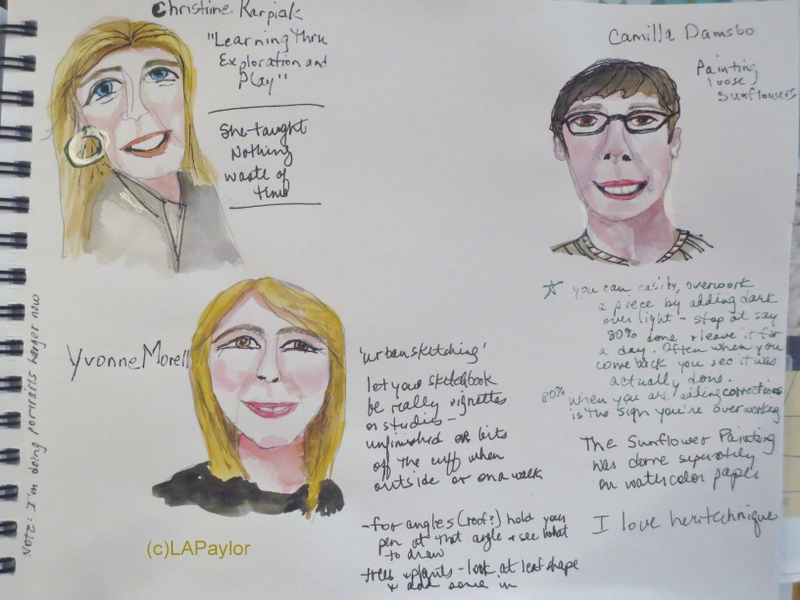 Christine Karpiak
"Learning Thru
Exploration and
Play"
She taught
Nothing
waste of
time
Camilla Damsbo
Painting
loose
Sunflowers
☆ you can easily overwork
a piece by adding dark
over light - stop at say
80% done & leave it for
a day. Often when you
come back you see it was
actually done.
80% when you are adding corrections
is the sign you're overworking
The Sunflower Painting
was done seperately
on watercolor paper
I love her technique
Yvonne Morell
'urban sketching'
let your sketchbook
be really vignettes
or studies -
unfinished or bits
off the cuff when
outside or on a walk
- for angles (roof?) hold your
pen at that angle & see what
to draw
trees & plants - look at leaf shape
& add some in
Note: I'm doing portraits larger now
(c)LAPaylor